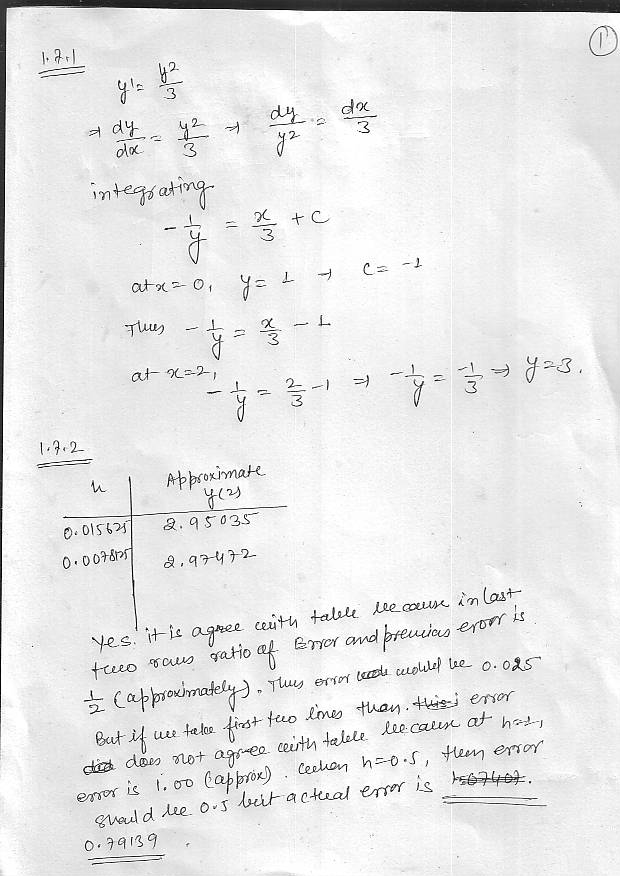 1
1.7.1
y' = y²/3
⇒ dy/dx = y²/3 ⇒ dy/y² = dx/3
integrating
-1/y = x/3 + C
at x = 0, y = 1 → C = -1
Thus -1/y = x/3 - 1
at x=2,
-1/y = 2/3 - 1 ⇒ -1/y = -1/3 ⇒ y = 3.
1.7.2
h Approximate
y(2)
0.015625 2.95035
0.0078125 2.97472
Yes. it is agree with table because in last
two rows ratio of Error and previous error is
1/2 (approximately). Thus error would be 0.025
But if we take first two lines than. this error
does not agree with table because at h=1,
error is 1.00 (approx). when h=0.5, then error
should be 0.5 but actual error is
0.79139.